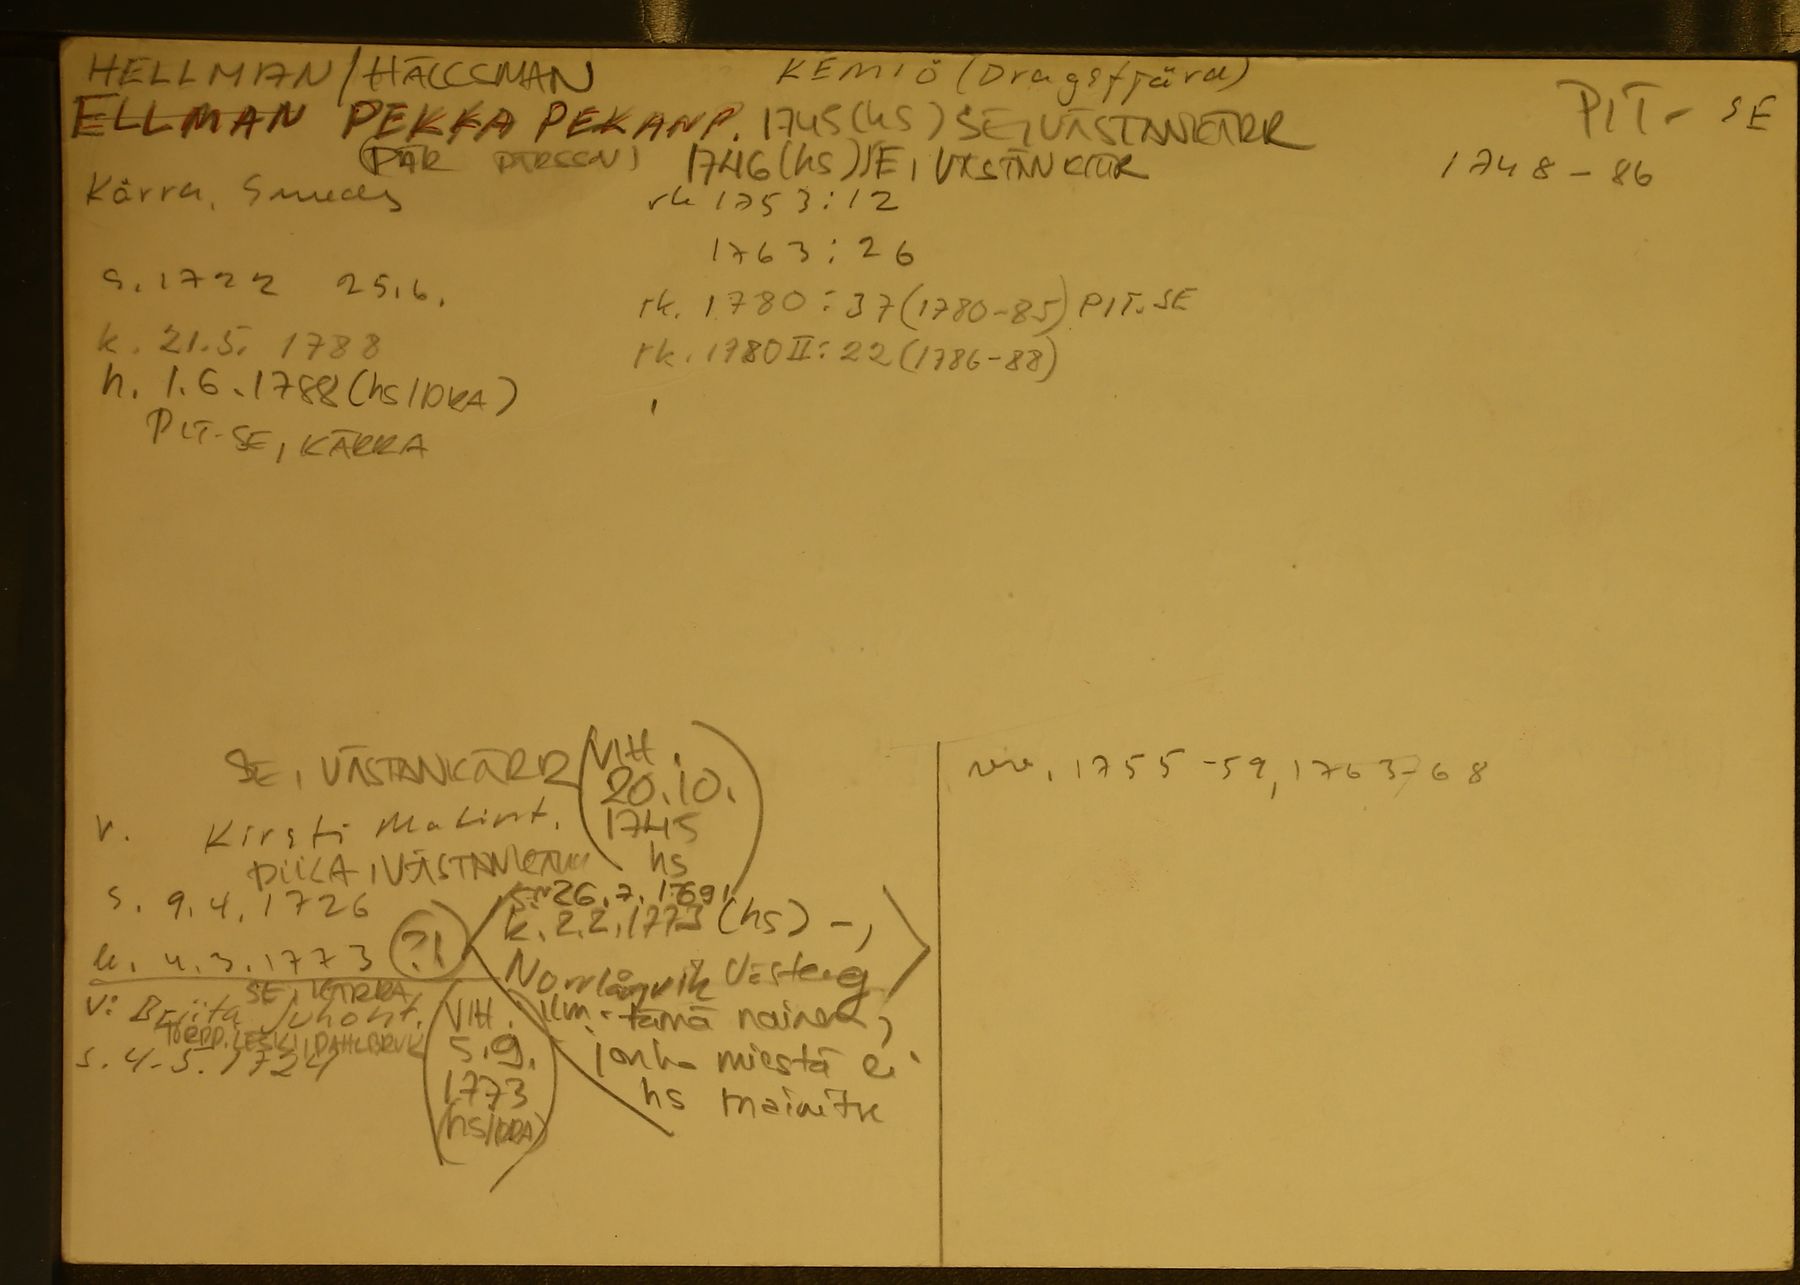 HELLMAN/HÄLLSMAN KEMIÖ (Dragsfjärd)
PIT-SE
ELLMAN PEKKA PEKANP. 1745 (hs) SE, VÄSTANKÄRR
(PÄR PERSSON) 1746 (hs) SE, VÄSTANKÄRR
1748-86
Kärra, Smeds
rk 1753:12
1763:26
s. 1722 25.6.
rk. 1780:37 (1780-85) PIT.SE
k. 21.5. 1788
rk. 1780 II:22 (1786-88)
h. 1.6.1788 (hs/DRA)
PIT-SE, KÄRRA
SE, VÄSTANKÄRR
(VIH.
20.10.
1745
hs)
v. Kirsti Matint.
PIIKA, VÄSTANKÄRR
s. 9.4.1726
k. 4.3.1773 (?!)
26.7.1691
k. 2.2.1773 (hs) -,
Norrlångvik Västerg
ilm. tämä nainen,
jonka miestä ei
hs mainitse
SE, KÄRRA
v: Briita Juhont.
TORPP. LESKI, DAHLBRUK
s. 4.5.1724
(VIH.
5.9.
1773
(hs/DRA)
1755-59, 1763-68